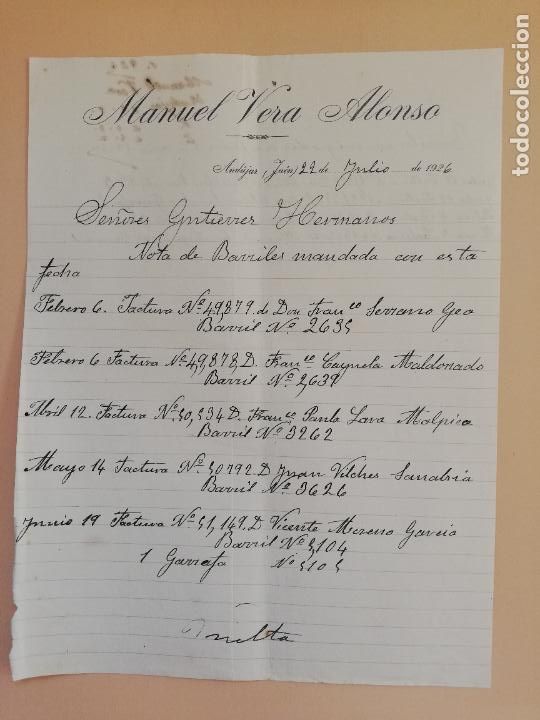 Manuel Vera Alonso
Andújar, (Jaén) 22 de Julio de 1926
Señores Gutierrez Hermanos
Nota de Barriles mandada con esta
fecha
Febrero 6. Factura Nº 49,879. de Don Franco Serrano Geo
Barril Nº 2635
Febrero 6 Factura Nº 49,878, D. Franco Maldonado
Barril Nº 2,639
Abril 12. Factura Nº 50,534 D. Franco Paula Lara Malpica
Barril Nº 3262
Mayo 14 Factura Nº 50792 D Juan Vilches Sanabria
Barril Nº 3626
Junio 19 Factura Nº 51,149. D. Vicente Moreno Garcia
Barril Nº 5104
1 Garrafa Nº 5105
Vuelta
todocoleccion.net